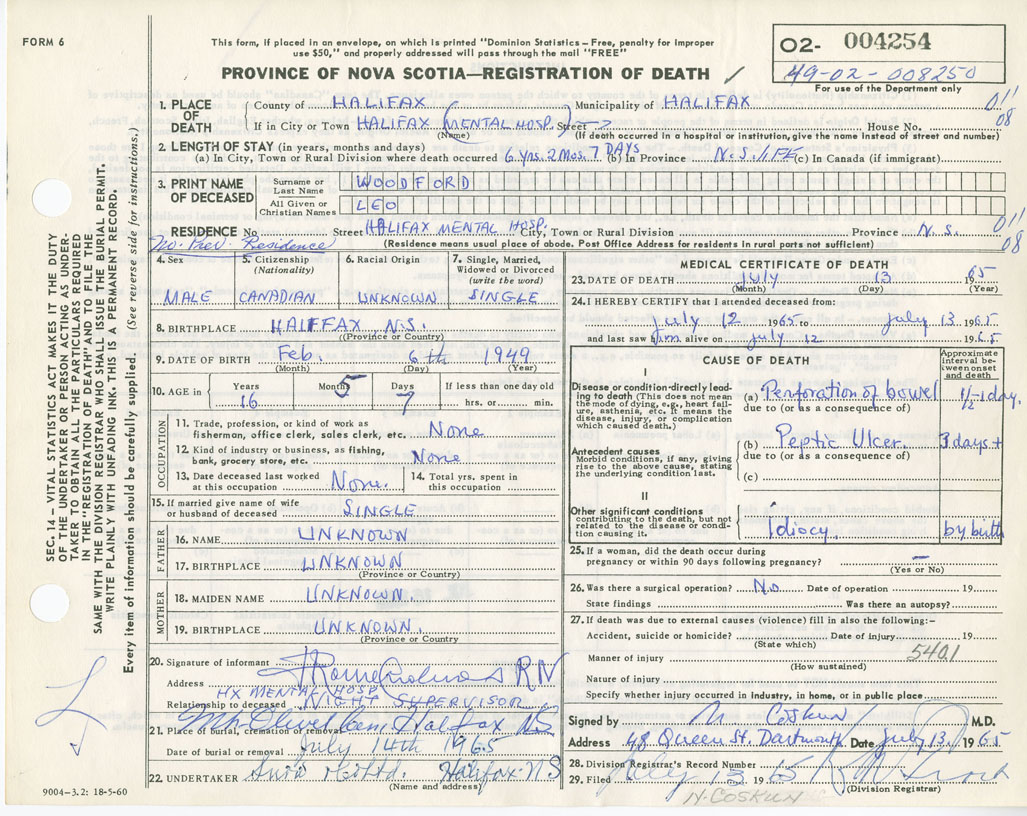 FORM 6
This form, if placed in an envelope, on which is printed "Dominion Statistics – Free, penalty for improper
use $50," and properly addressed will pass through the mail "FREE"
PROVINCE OF NOVA SCOTIA—REGISTRATION OF DEATH ✓
02- 004254
49-02-008250
For use of the Department only
1. PLACE OF DEATH
County of HALIFAX Municipality of HALIFAX
If in City or Town HALIFAX (MENTAL HOSP. Street → House No.
(Name) (If death occurred in a hospital or institution, give the name instead of street and number)
011
08
2. LENGTH OF STAY (in years, months and days)
(a) In City, Town or Rural Division where death occurred 6 yrs. 2 Mos. 7 DAYS (b) In Province N.S. LIFE (c) In Canada (if immigrant)
3. PRINT NAME OF DECEASED
Surname or Last Name WOODFORD
All Given or Christian Names LEO
RESIDENCE No. Street HALIFAX MENTAL HOSP. City, Town or Rural Division Province N.S.
No. Prev. Residence (Residence means usual place of abode. Post Office Address for residents in rural parts not sufficient)
011
08
4. Sex
MALE
5. Citizenship (Nationality)
CANADIAN
6. Racial Origin
UNKNOWN
7. Single, Married, Widowed or Divorced (write the word)
SINGLE
8. BIRTHPLACE HALIFAX N.S.
(Province or Country)
9. DATE OF BIRTH Feb. 6th 1949
(Month) (Day) (Year)
10. AGE in Years 16 Months 5 Days 7 If less than one day old hrs. or min.
OCCUPATION
11. Trade, profession, or kind of work as fisherman, office clerk, sales clerk, etc. None
12. Kind of industry or business, as fishing, bank, grocery store, etc. None
13. Date deceased last worked at this occupation None.
14. Total yrs. spent in this occupation
15. If married give name of wife or husband of deceased SINGLE
FATHER
16. NAME UNKNOWN
17. BIRTHPLACE UNKNOWN
(Province or Country)
MOTHER
18. MAIDEN NAME UNKNOWN.
19. BIRTHPLACE UNKNOWN.
(Province or Country)
20. Signature of informant RN
Address HX MENTAL HOSP
Relationship to deceased NIGHT SUPERVISOR
21. Place of burial, cremation or removal Mt. Olivet Cem Halifax NS
Date of burial or removal July 14th 1965
22. UNDERTAKER Snow & Co Ltd. Halifax NS
(Name and address)
MEDICAL CERTIFICATE OF DEATH
23. DATE OF DEATH July 13 1965
(Month) (Day) (Year)
24. I HEREBY CERTIFY that I attended deceased from:
July 12 1965 to July 13 1965
and last saw him alive on July 12 1965
CAUSE OF DEATH
Approximate interval between onset and death
I
Disease or condition directly leading to death (This does not mean the mode of dying, e.g., heart failure, asthenia, etc. It means the disease, injury, or complication which caused death.)
(a) Perforation of bowel 1/2-1 day.
due to (or as a consequence of)
Antecedent causes
Morbid conditions, if any, giving rise to the above cause, stating the underlying condition last.
(b) Peptic Ulcer. 3 days +
due to (or as a consequence of)
(c)
II
Other significant conditions contributing to the death, but not related to the disease or condition causing it.
idiocy. by birth
25. If a woman, did the death occur during pregnancy or within 90 days following pregnancy? —
(Yes or No)
26. Was there a surgical operation? No Date of operation 19
State findings Was there an autopsy?
27. If death was due to external causes (violence) fill in also the following:–
Accident, suicide or homicide? Date of injury 19
(State which)
5401
Manner of injury
(How sustained)
Nature of injury
Specify whether injury occurred in industry, in home, or in public place
Signed by N. COSKUN M.D.
Address 48 Queen St. Dartmouth Date July 13, 1965
28. Division Registrar's Record Number
29. Filed July 13 1965
(Division Registrar)
N. COSKUN
SEC. 14 – VITAL STATISTICS ACT MAKES IT THE DUTY
OF THE UNDERTAKER OR PERSON ACTING AS UNDER-
TAKER TO OBTAIN ALL THE PARTICULARS REQUIRED
IN THE "REGISTRATION OF DEATH" AND TO FILE THE
SAME WITH THE DIVISION REGISTRAR WHO SHALL ISSUE THE BURIAL PERMIT.
WRITE PLAINLY WITH UNFADING INK. THIS IS A PERMANENT RECORD.
Every item of information should be carefully supplied. (See reverse side for instructions.)
9004-3.2: 18-5-60